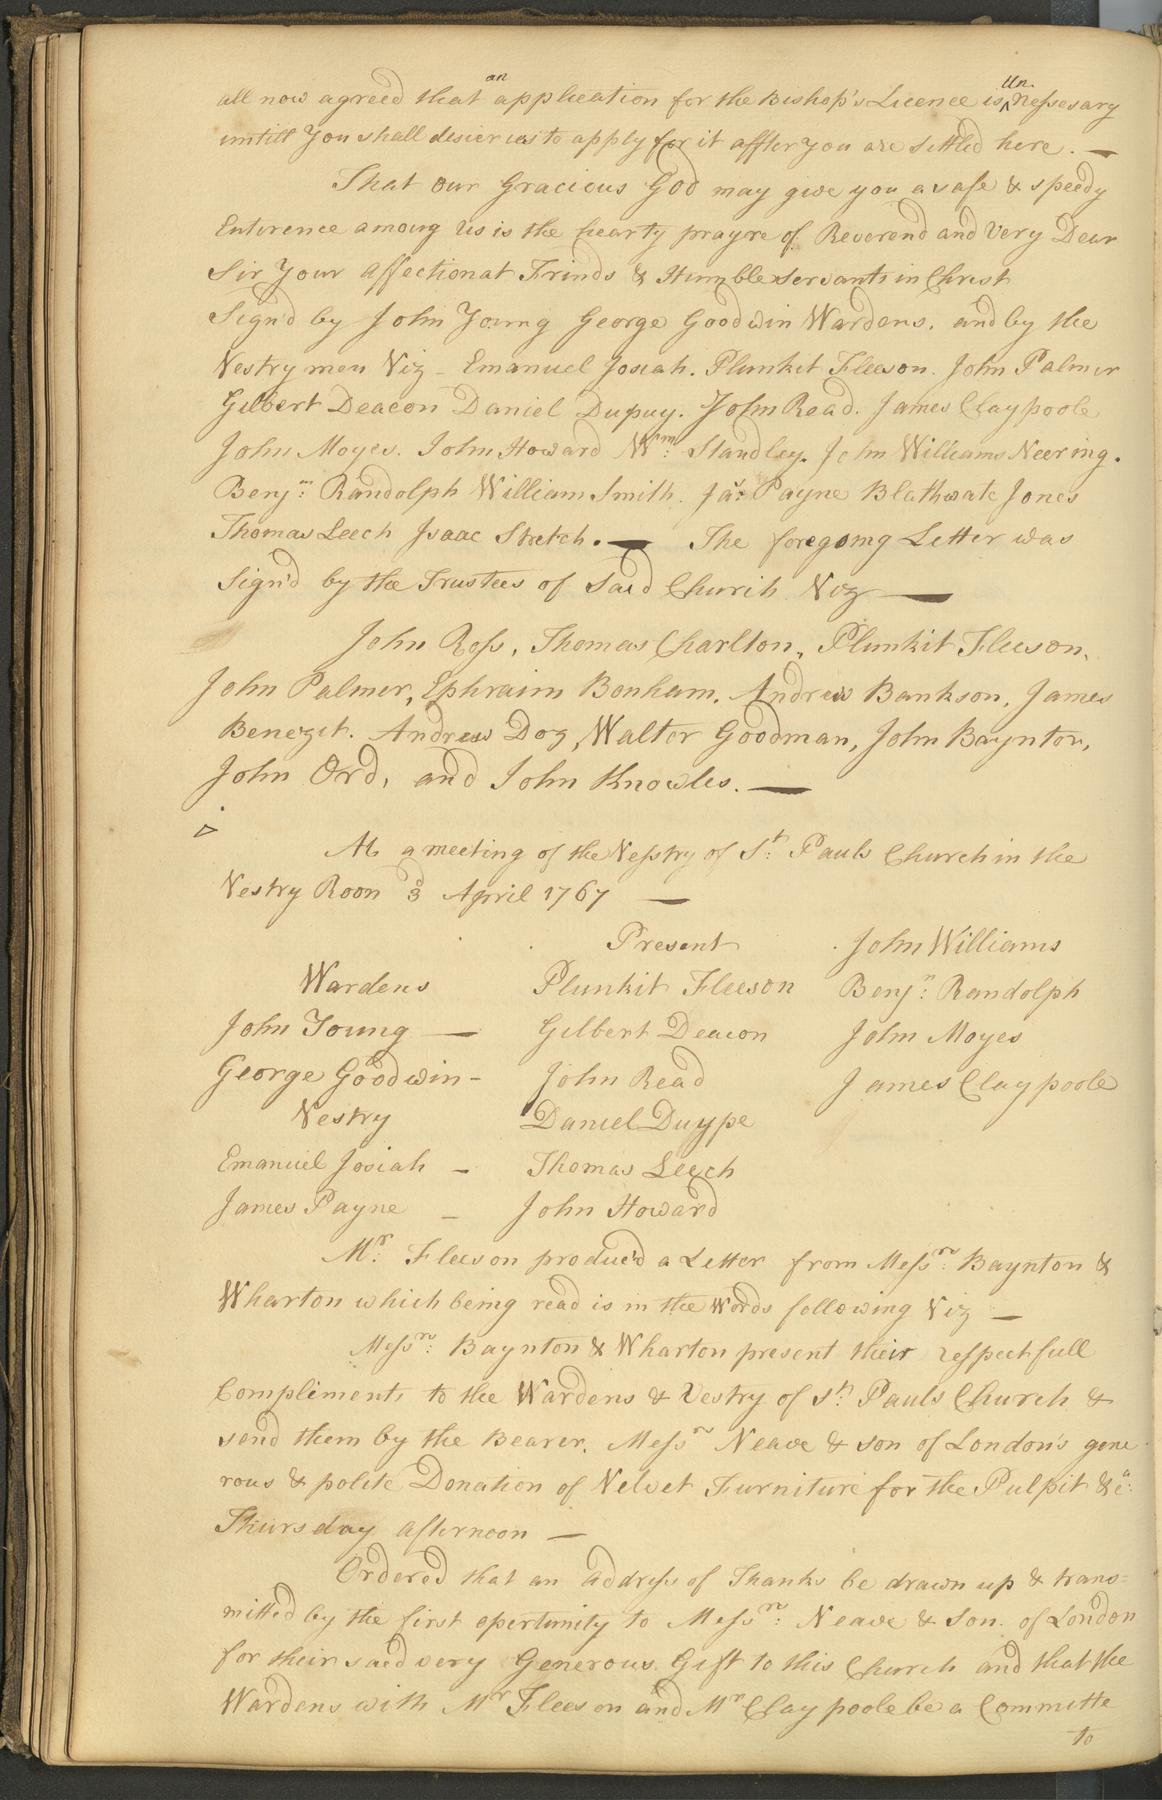 all now agreed that an application for the Bishop's Licence is Un nessesary
untill You shall desier us to apply for it affter you are settled here. —
That our Gracious God may give you a safe & speedy
Enterence among Us is the hearty prayre of Reverend and Very Dear
Sir Your affectionat Frinds & Humble servants in Christ
Sign'd by John Young George Goodwin Wardens. and by the
Vestry men Viz - Emanuel Josiah. Plunkit Fleeson. John Palmer
Gilbert Deacon Daniel Dupuy. John Read. James Claypoole
John Moyes. John Howard Wm: Standley. John Williams Neering.
Benjm: Randolph William Smith. Jas: Payne Blathwate Jones
Thomas Leech Isaac Stretch. — The foregoing Letter was
Sign'd by the Trustees of Said Church Viz —
John Ross, Thomas Charlton, Plunkit Fleeson,
John Palmer, Ephraim Bonham, Andrew Bankson, James
Benezet. Andrew Doz, Walter Goodman, John Baynton,
John Ord, and John Knowles. —
At a meeting of the Vesstry of St: Pauls Church in the
Vestry Room 3d April 1767 —
Present John Williams
Wardens Plunkit Fleeson Benjn: Randolph
John Young — Gilbert Deacon John Moyes
George Goodwin - John Read James Claypoole
Vestry Daniel Duype
Emanuel Josiah - Thomas Leech
James Payne - John Howard
Mr: Fleeson produc'd a Letter from Messrs: Baynton &
Wharton which being read is in the Words following Viz —
Messrs: Baynton & Wharton present their respectfull
Compliments to the Wardens & Vestry of St: Pauls Church &
send them by the Bearer. Messrs Neave & son of London's gene
rous & polite Donation of Velvet Furniture for the Pulpit &ca:
Thursday afternoon —
Ordered that an address of Thanks be drawn up & trans=
mitted by the first opertunity to Messrs: Neave & Son. of London
for their said very Generous Gift to this Church and that the
Wardens with Mr Fleeson and Mr Claypoole be a Committe
to